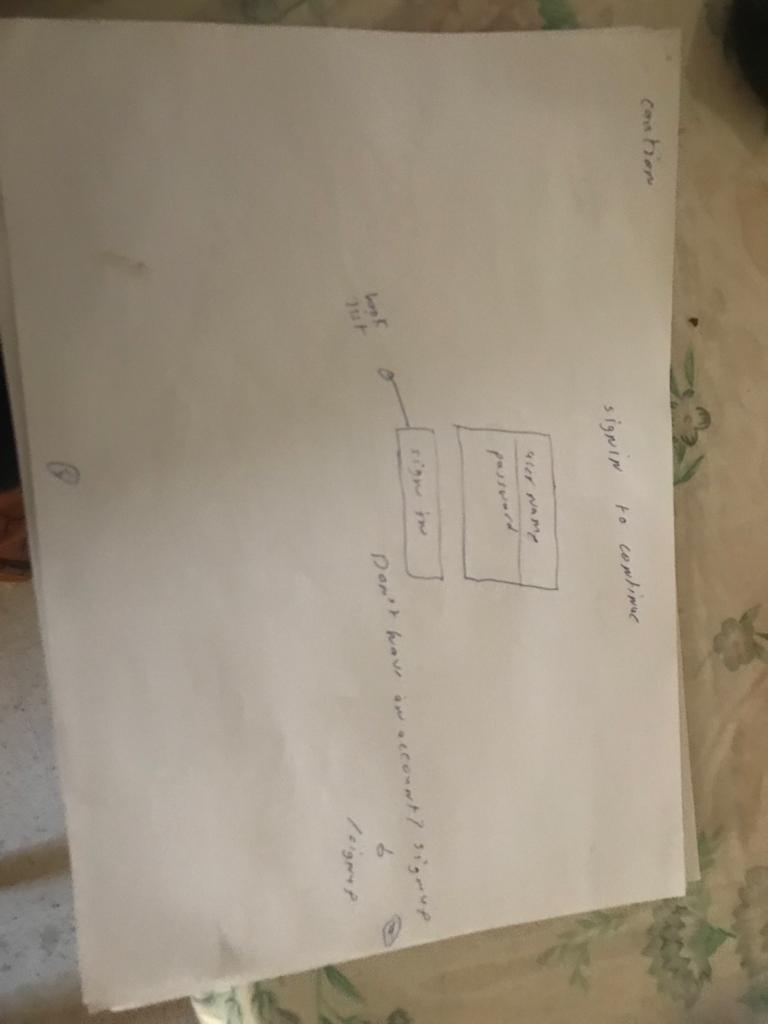 caution
signin to continue
user name
password
sign in
Don't have an account? signup
/signup